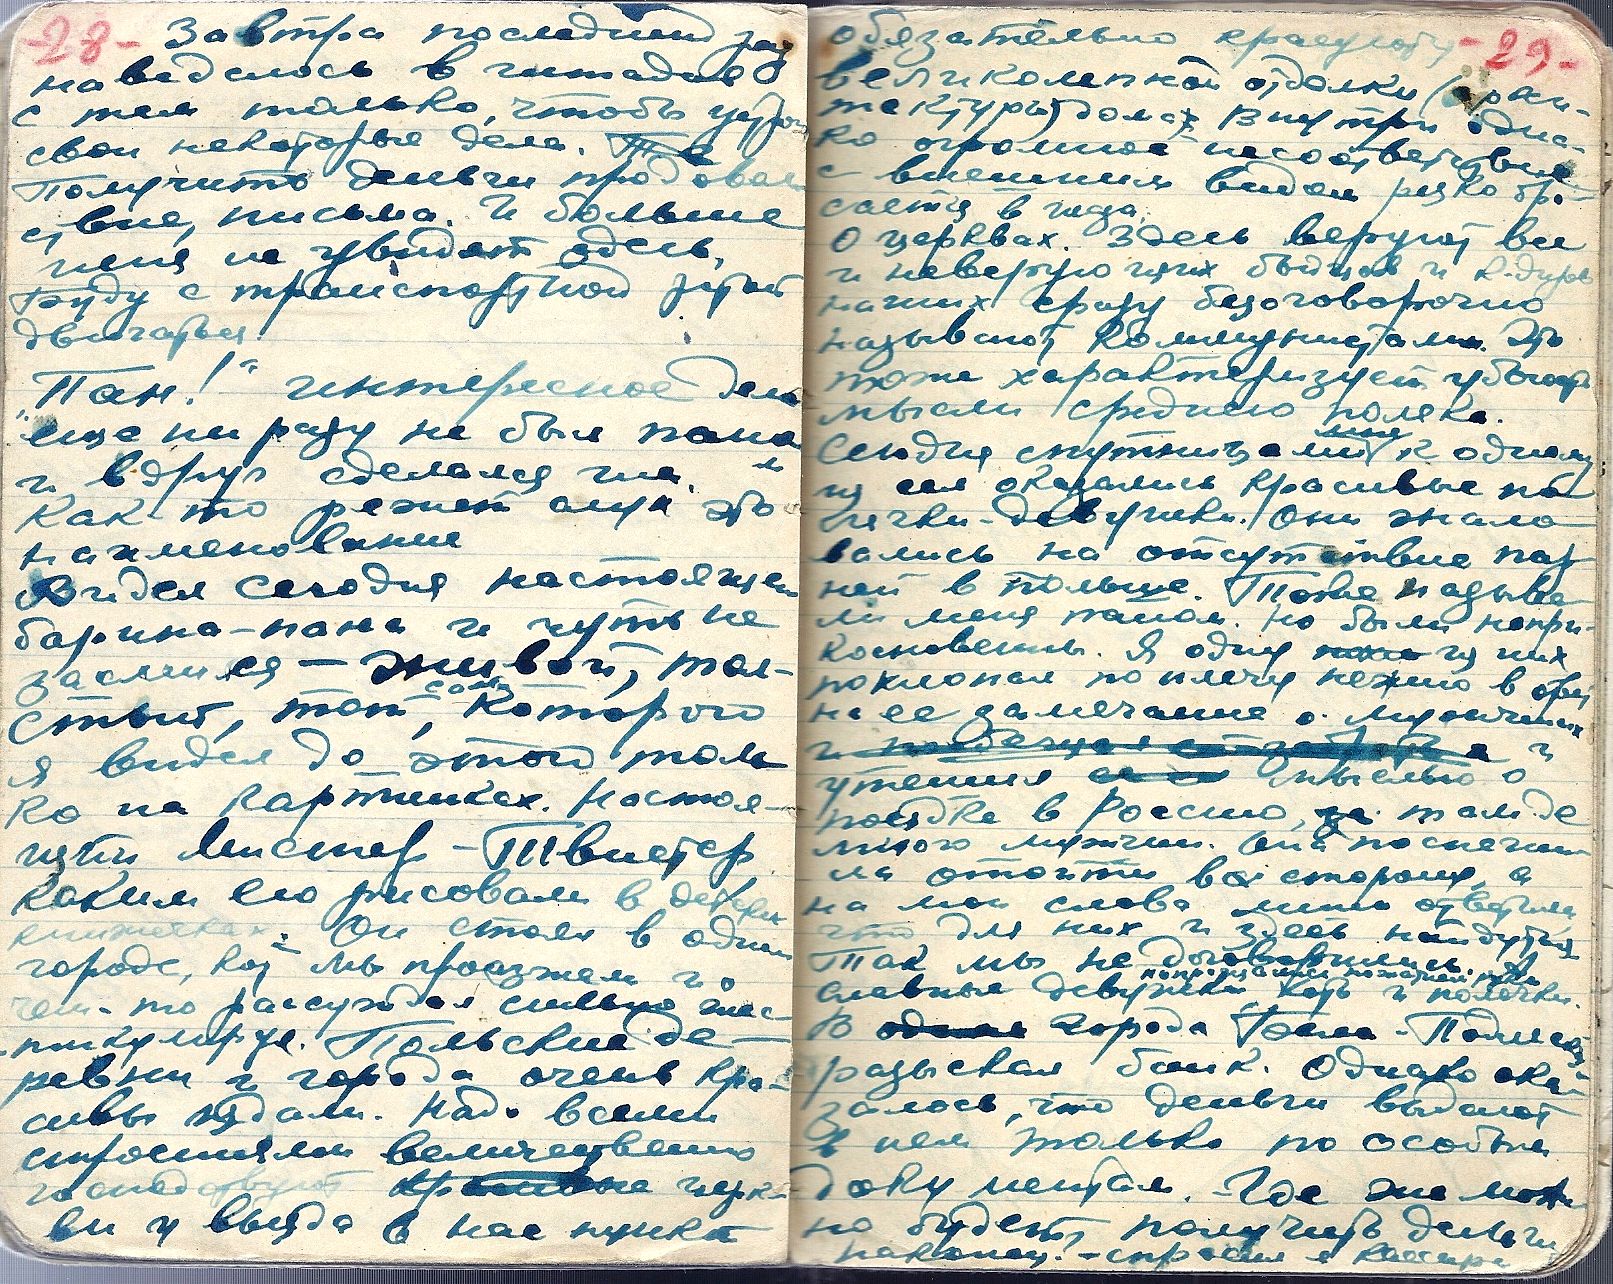 -28-
Завтра последний раз
наведаюсь в читадив
с тем только, чтобы
свои некоторые дела.
Получить деньги продоволь
ствие, письма. И больше
меня не увидят здесь,
Буду с транспортной ротой
двигаться.
„Пан!“ интересное дело
еще ни разу не был пана
и вдруг сделался им.
Как-то режет слух это
наименование
Видел сегодня настоящего
барина-пана и чуть не
засмеялся – живой, тол-
стый, тот самый, которого
я видел до этого толь
ко на картинках. Настоя-
щий Мистер-Твистер
каким его рисовали в детских
книжечках. Он стоял в одном
городе, кот мы проезжали и о
чем-то рассуждал сильно жес-
тикулируя. Польские де-
ревни и города очень кра-
сивы издали. Надо всеми
строениями величественно
господствуют церк-
ви у въезда в нас пункт
-29-
обязательно красуются
великолепной отделки (архи-
тектуры) дома. Внутри одна-
ко огромное несоответствие
с внешним видом резко бро-
сается в глаза.
О церквах. Здесь веруют все
и неверующих бойцов и к-диров
наших сразу безоговорочно
называют коммунистами. Это
тоже характеризует убогость
мысли среднего поляка.
Сегодня спутницами мне к одному
из сел оказались красивые по-
лячки-девушки. Они жало-
вались на отсутствие пар
ней в польше. Тоже называ
ли меня паном. Но были непри-
косновенны. Я одну из них
похлопал по плечу нежно в ответ
на ее замечание о мужчинах
и
утешил мыслью о
поездке в Россию, там де
много мужчин. Она поспеши
ла отойти в сторону, а
на мои слова мне ответила
что для них и здесь найдутся
Так мы не договорились.
попрощались пожатием руки
славные девушки хоть и полячки.
В города Бяла-Подляск
разыскал банк. Однако ока-
залось, что деньги выдают
в нем только по особым
документам. -Где же мож
но будет получить деньги
наконец? – спросил я кассира